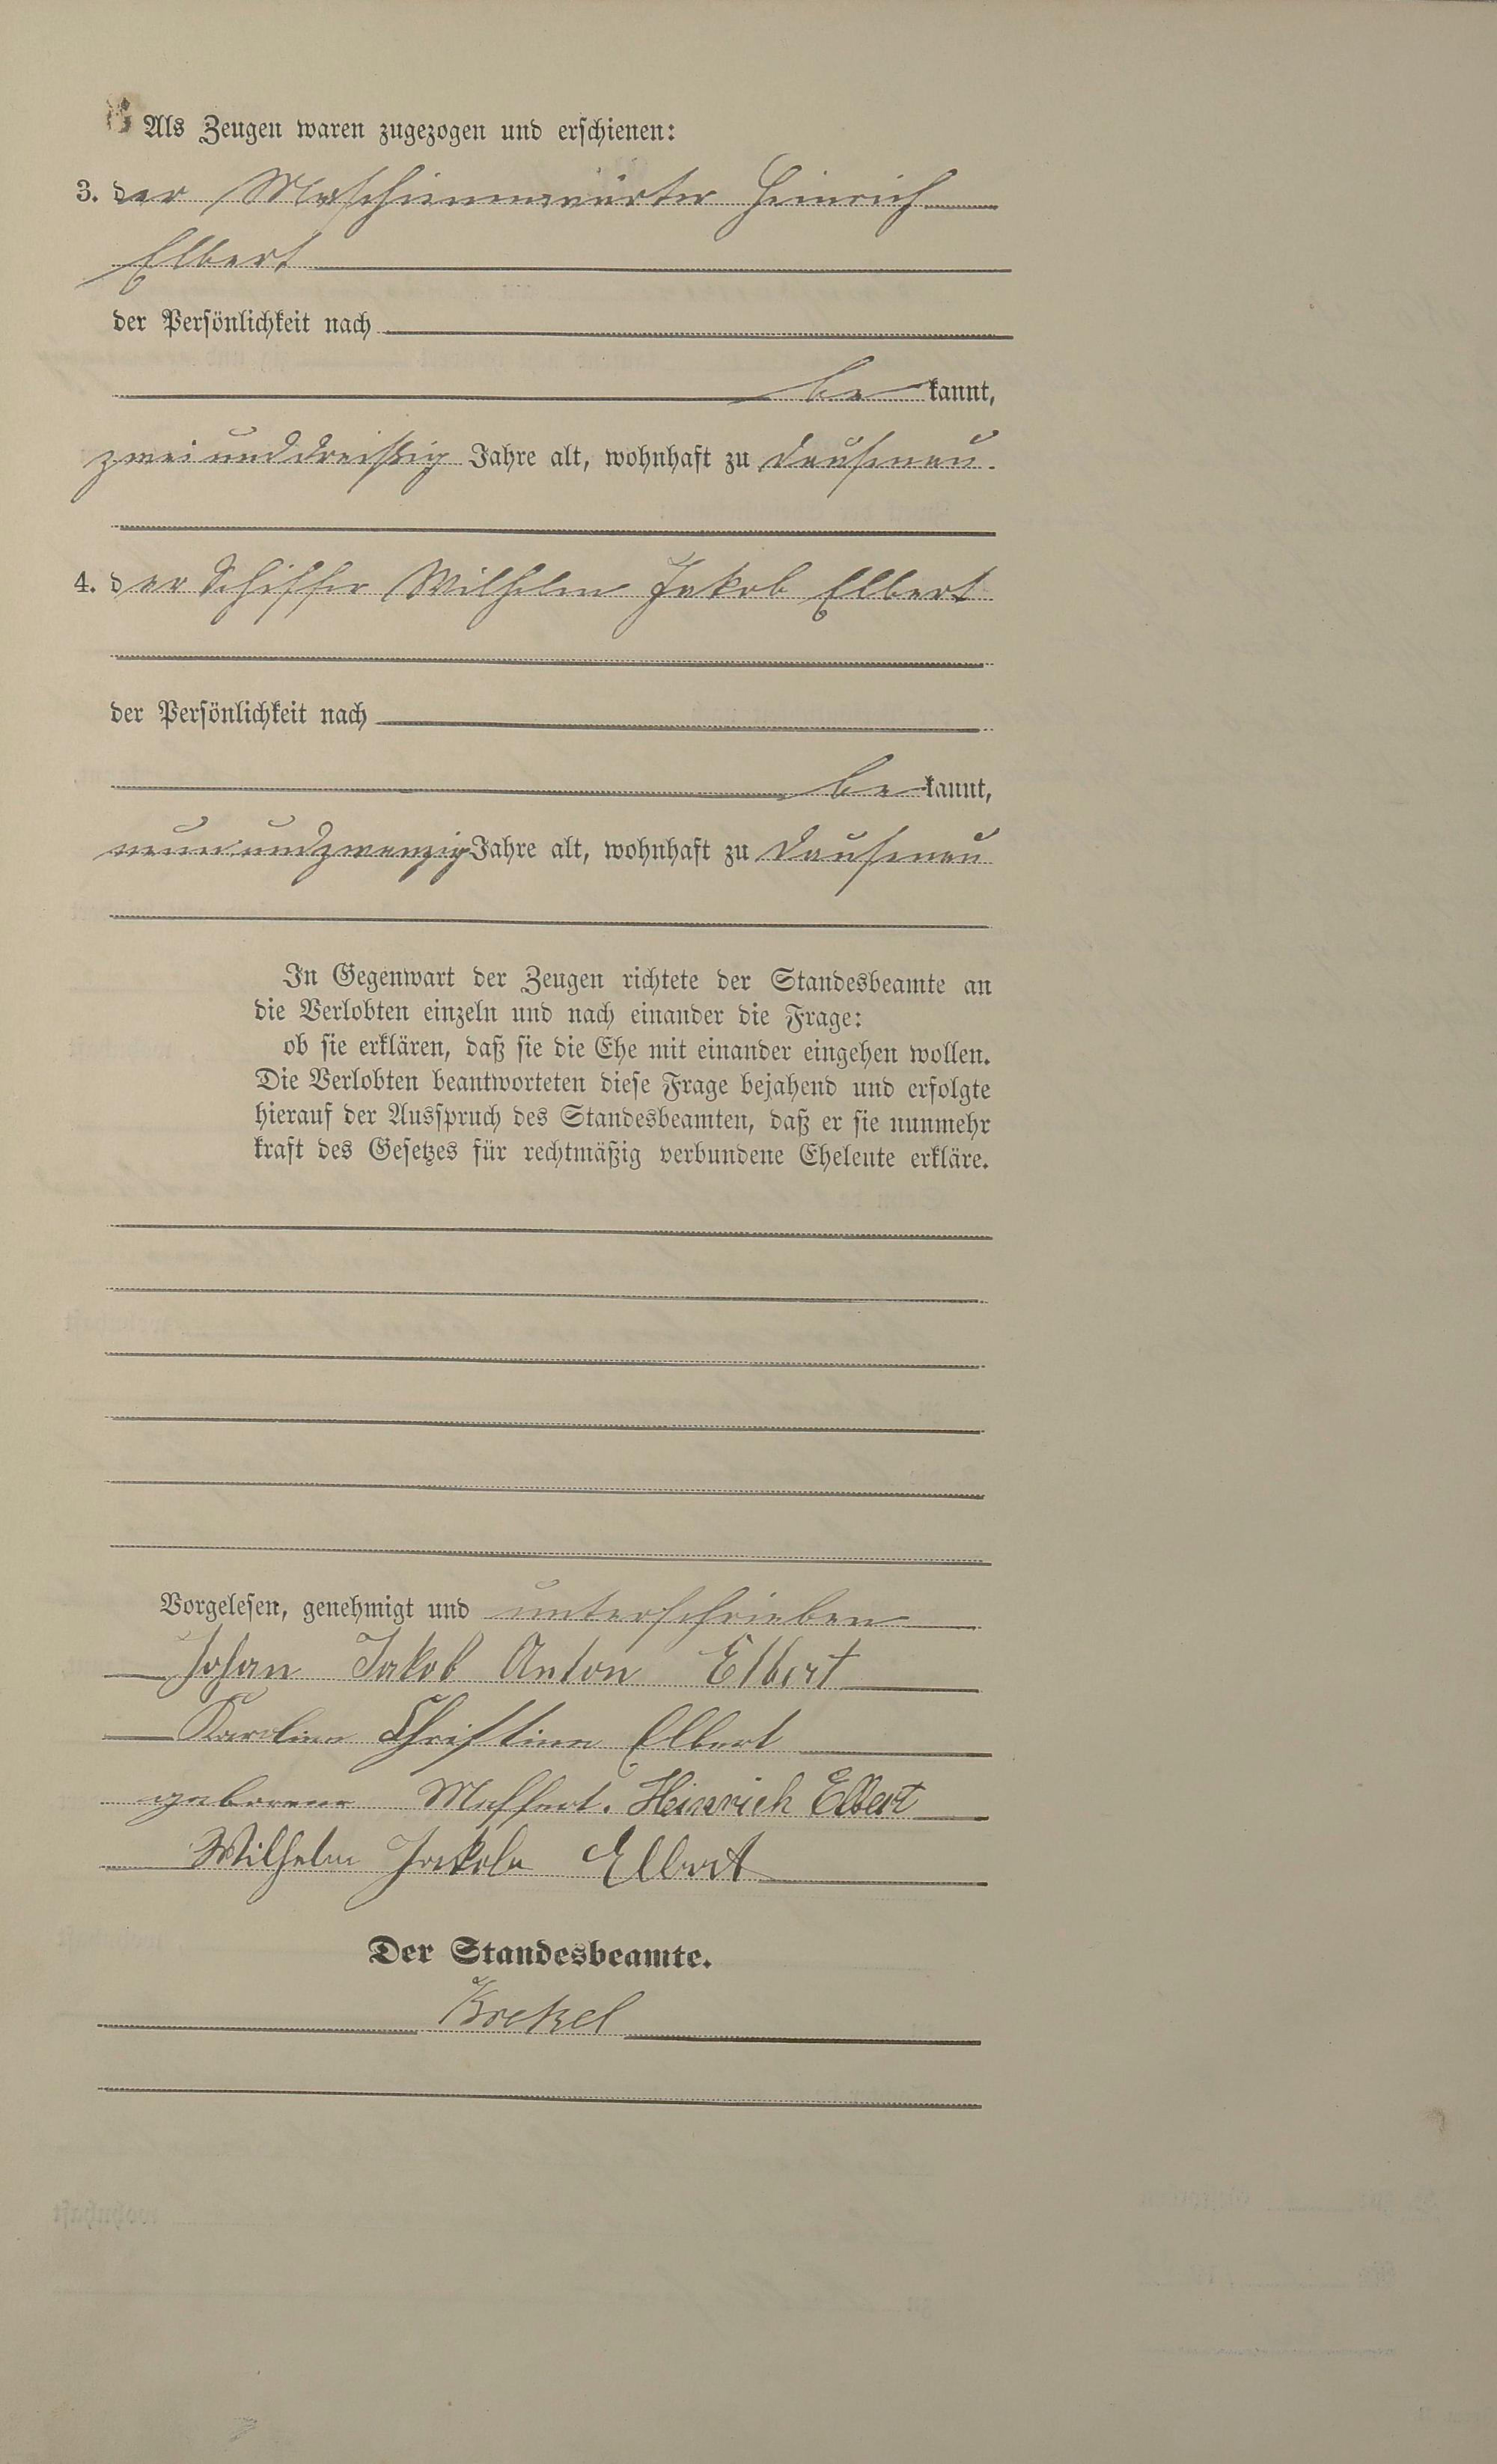 Als Zeugen waren zugezogen und erschienen:
3. der Maschienenwärter Heinrich
Elbert
der Persönlichkeit nach
be kannt,
zweiunddreißig Jahre alt, wohnhaft zu Dausenau.
4. der Schiffer Wilhelm Jakob Elbert
der Persönlichkeit nach
be kannt,
neunundzwanzig Jahre alt, wohnhaft zu Dausenau
In Gegenwart der Zeugen richtete der Standesbeamte an
die Verlobten einzeln und nach einander die Frage:
ob sie erklären, daß sie die Ehe mit einander eingehen wollen.
Die Verlobten beantworteten diese Frage bejahend und erfolgte
hierauf der Ausspruch des Standesbeamten, daß er sie nunmehr
kraft des Gesetzes für rechtmäßig verbundene Eheleute erkläre.
Vorgelesen, genehmigt und unterschrieben
Johan Jakob Anton Elbert
Karoline Christine Elbert
geborene Maffert. Heinrich Elbert
Wilhelm Jakob Elbert
Der Standesbeamte.
Krekel